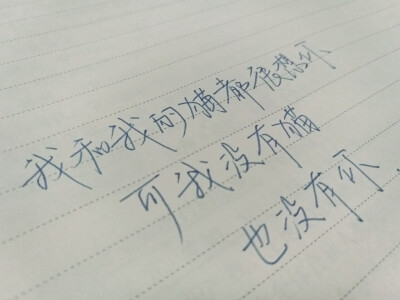 我和我的猫都很想你
可我没有猫
也没有你.